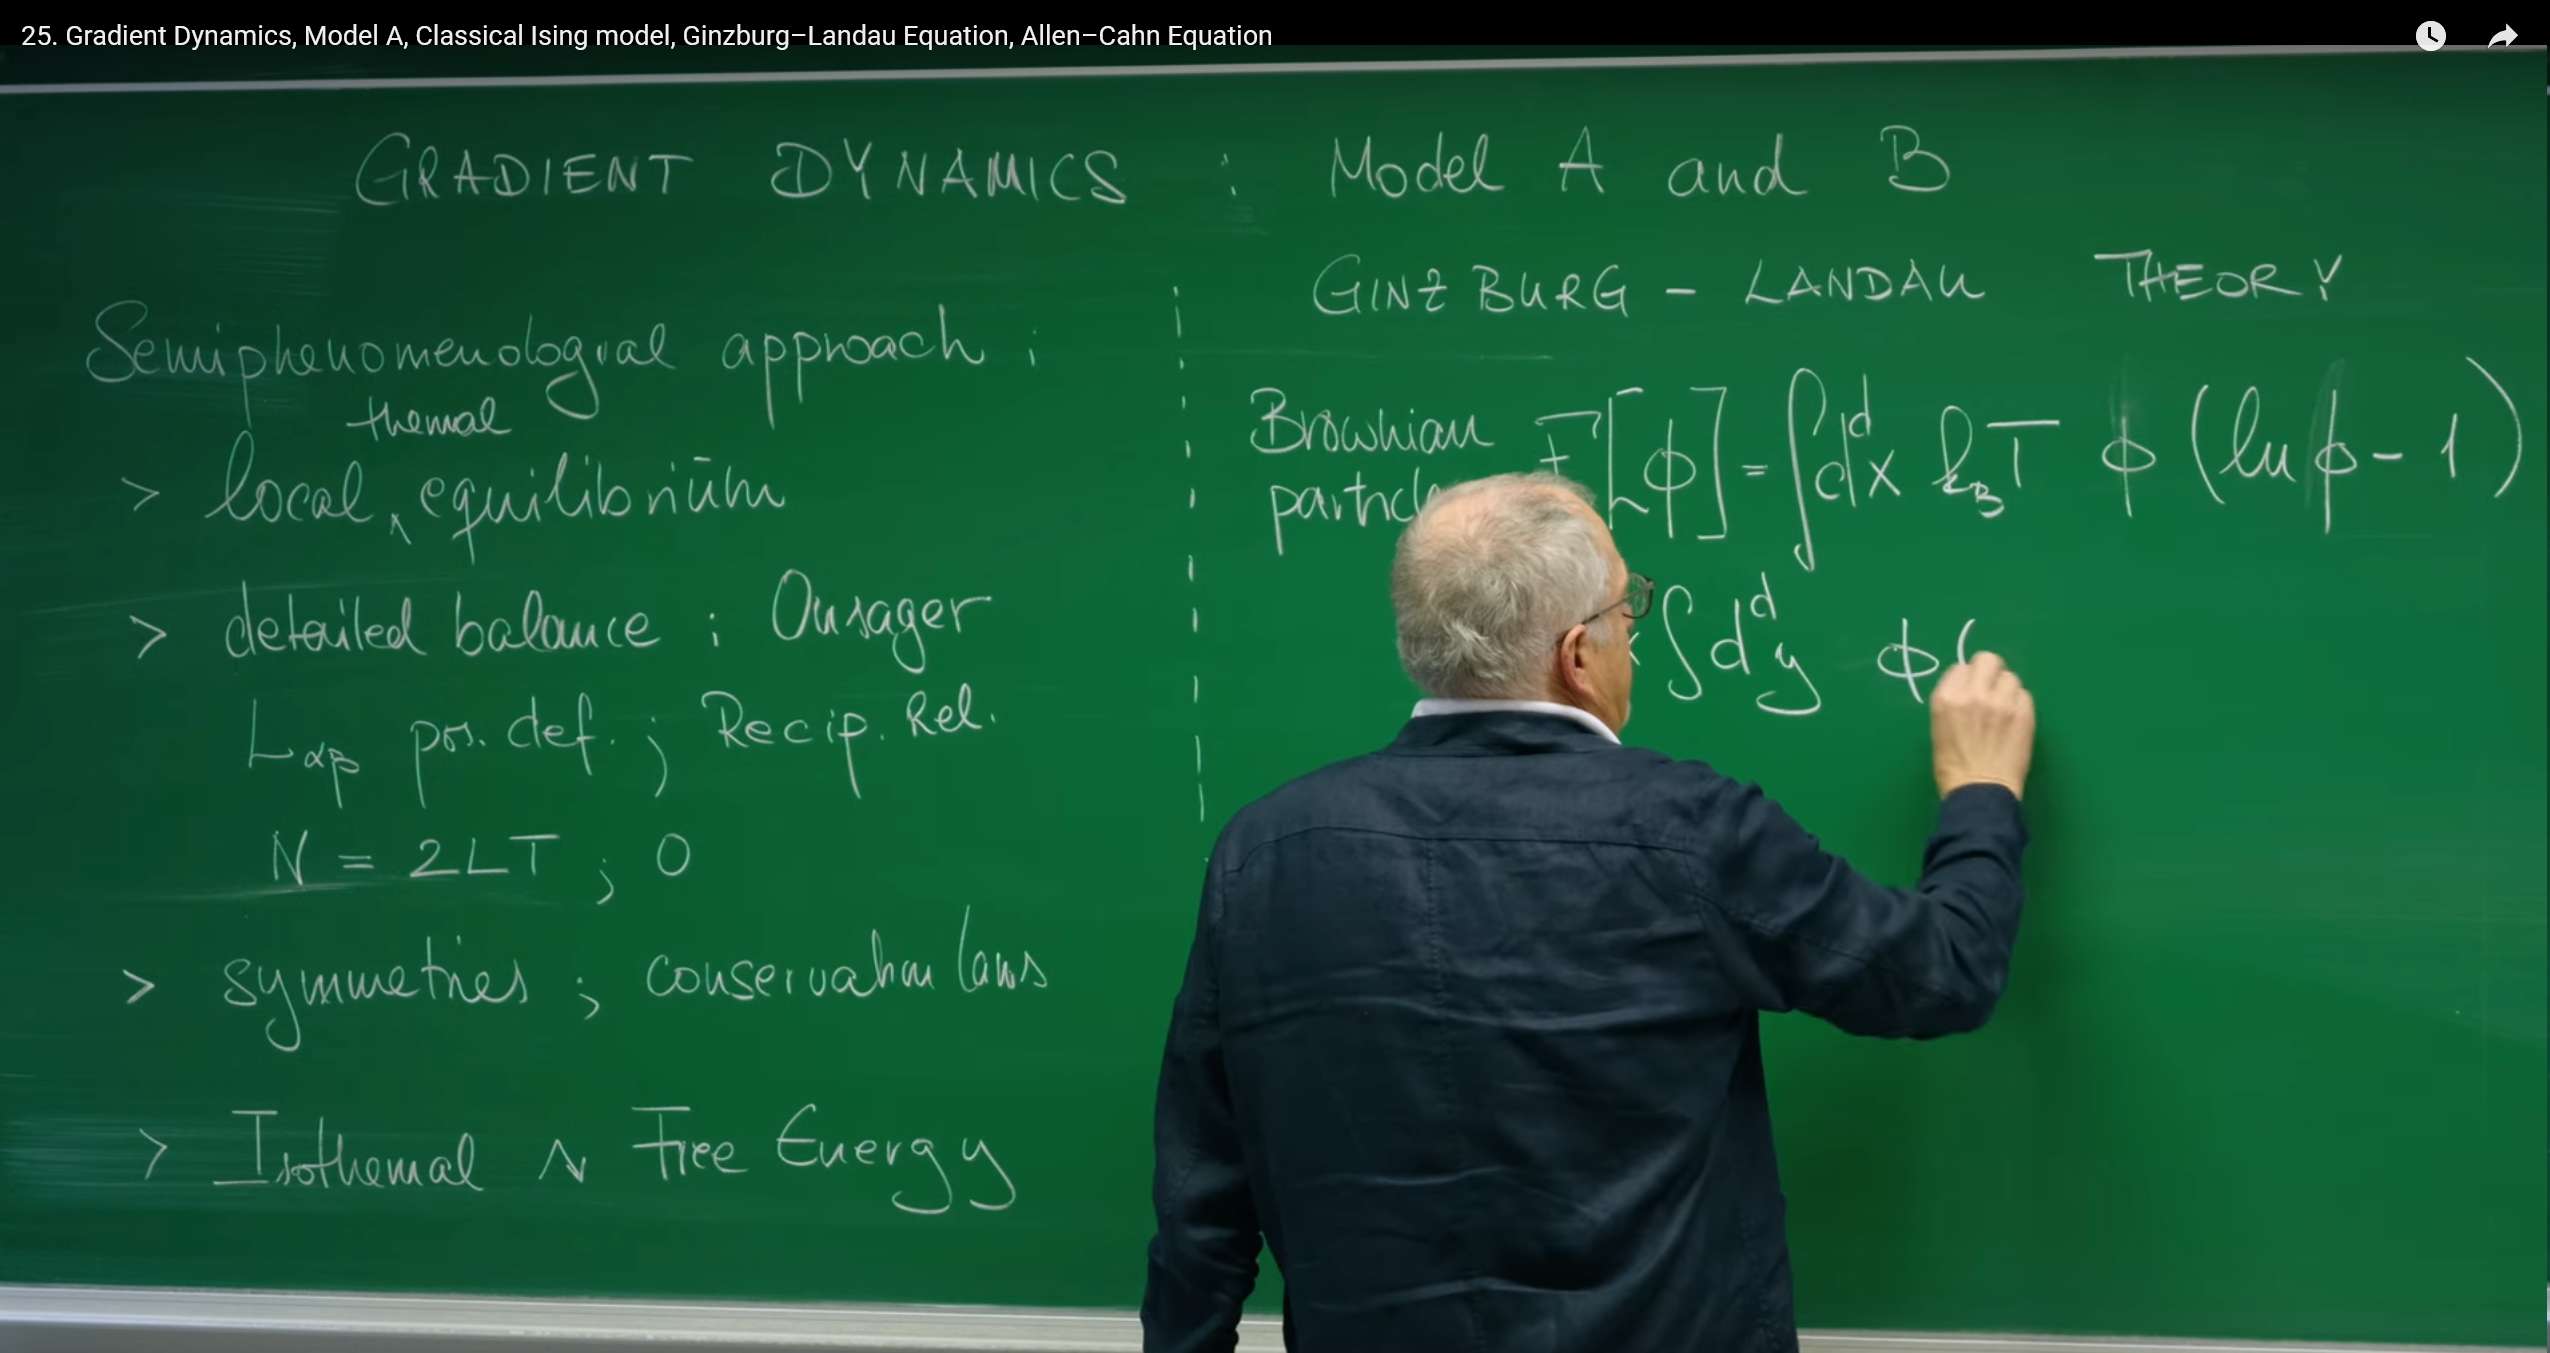 25. Gradient Dynamics, Model A, Classical Ising model, Ginzburg–Landau Equation, Allen–Cahn Equation
GRADIENT DYNAMICS : Model A and B
Semiphenomenologial approach :
thermal
> local ∧ equilibrium
> detailed balance : Onsager
L_αβ pos. def. ; Recip. Rel.
N = 2LT ; 0
> symmetries ; conservation laws
> Isothermal ~ Free Energy
GINZBURG - LANDAU THEORY
Brownian
F[ϕ] = ∫d^d x k_B T ϕ (ln ϕ - 1)
∫d^d y ϕ(